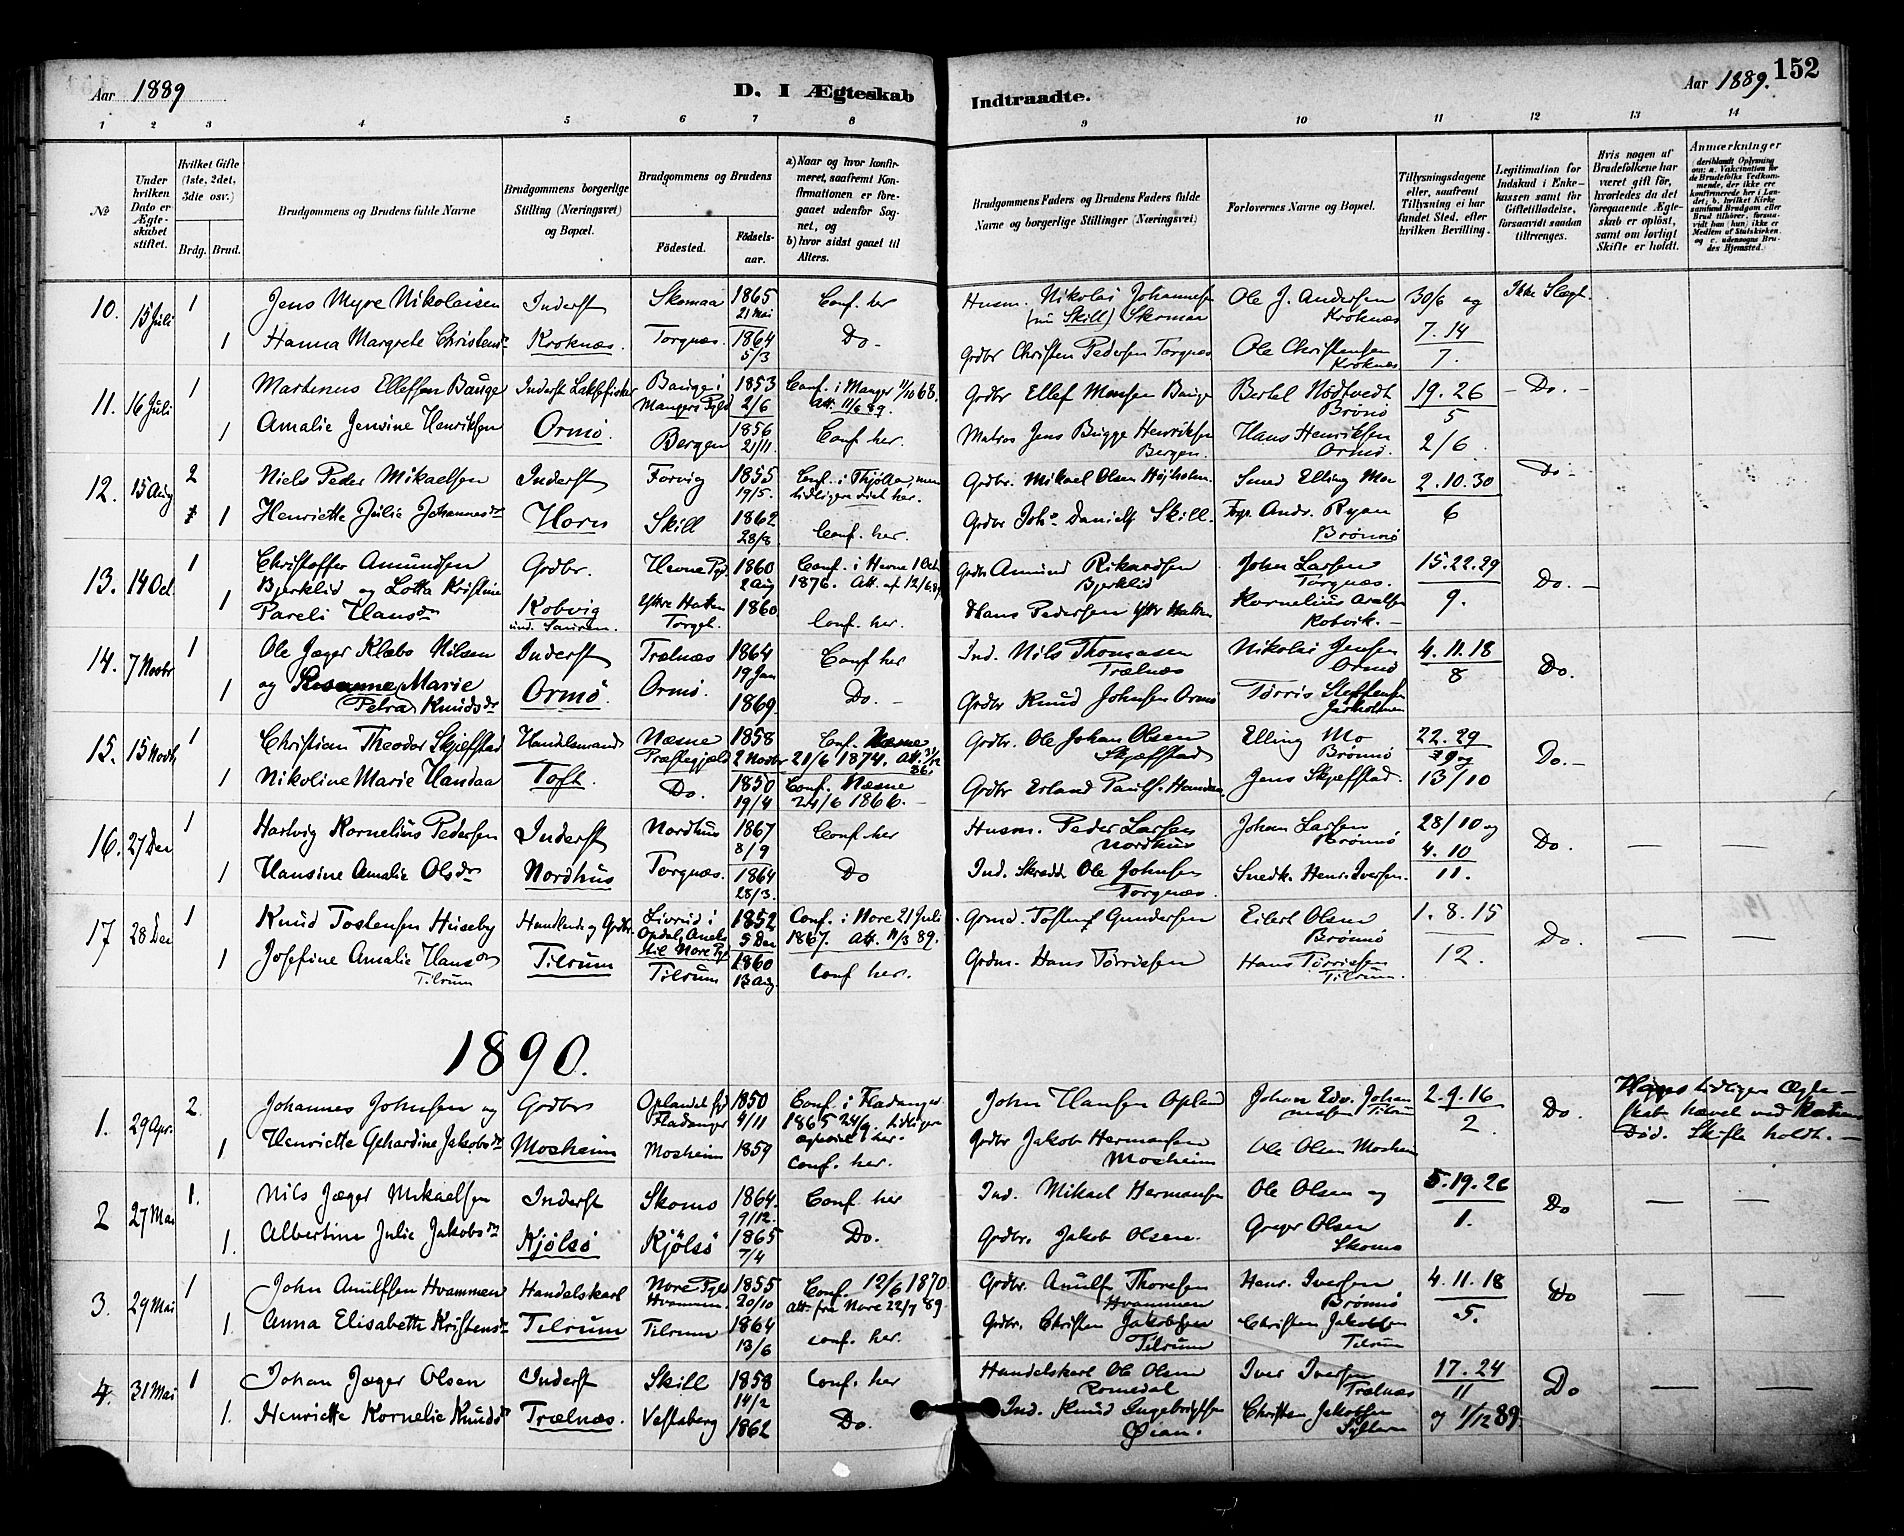 Aar 1889
D. I Ægteskab
Indtraadte.
Aar 1889.
152
1 2 3 4 5 6 7 8 9 10 11 12 13 14
№
Under hvilken Dato er Ægteskabet stiftet.
Hvilket Gifte (1ste, 2det, 3die osv.)
Brdg. Brud.
Brudgommens og Brudens fulde Navne
Brudgommens borgerlige Stilling (Næringsvei) og Bopæl.
Brudgommens og Brudens
Fødested.
Fødselsaar.
a) Naar og hvor konfirmeret, saafremt Konfirmationen er foregaaet udenfor Sognet, og
b) hvor sidst gaaet til Alters.
Brudgommens Faders og Brudens Faders fulde Navne og borgerlige Stillinger (Næringsvei)
Forlovernes Navne og Bopæl.
Tillysningsdagene eller, saafremt Tillysning ei har fundet Sted, efter hvilken Bevilling.
Legitimation for Indskud i Enkekassen samt for Giftetilladelse, forsaavidt saadan tiltrænges.
Hvis nogen af Brudefolkene har været gift før, hvorledes da det foregaaende Ægteskab er opløst, samt om lovligt Skifte er holdt.
Anmærkninger
10. 15 Juli 1 Jens Myre Nikolaisen Inderst Skomaa 1865 21 Mai Conf. her Husm. Nikolai Johannesen (nu Skill) Skomaa Ole J. Andersen Kroknæs 30/6 og Ikke Slægt.
1 Hanna Margrete Christensdr Kroknæs. Torgnæs. 1864 5/3 Do. Grdbr Christen Pedersen Torgnæs Ole Christensen Kroknæs 7. 14 7.
11. 16 Juli 1 Martinus Ellefsen Bauge Inderst Laksefisker Bauge i Mangers Pgld 1853 2/6 Conf. i Manger 11/10 68. Att. 11/6 89. Grdbr Ellef Monsen Bauge Bertel Nödtvedt Brönö 19. 26 5 Do.
1 Amalie Jensine Henriksen Ormö. Bergen 1856 21/11 Conf. her. Matros Jens Brygge Henriksen Bergen. Hans Henriksen Ormö. 2/6.
12. 15 Aug 2 Niels Peder Mikaelsen Inderst Forvig 1855 19/5. Conf. i Thjötta, men tidligere viet her. Grdbr. Mikael Olsen Höjholm Smed Elling Mo 2. 10. 30 Do
1 Henriette Julie Johannesdr Horn Skill 1862 28/8 Conf. her. Grdbr Johs Danielss Skill. Andr. Ryan Brönnö 6
13. 14 Oct. 1 Christoffer Amundsen Bjerklid og Lotta Kristine Grdbr. Hevne Pgd 1860 2 Aug Conf. i Hevne 1 Oct 1876. Att. af 12/6 89 Grdbr Amund Rikardsen Bjerklid Johan Larsen Torgnæs. 15. 22. 29 Do.
1 Pareli Hansdr Kobvig und. Sauren. Yttre Hatten Torget. 1860 Conf. her. Hans Pedersen Yttr Hatten Kornelius Kobvik. 9.
14. 7 Novbr 1 Ole Jæger Klæbo Nilsen Inderst Trælnæs 1864 19 Jan Conf. her Ind. Nils Thomasen Trælnæs Nikolai Jensen Ormö 4. 11. 18 8 Do.
1 og Susanne Marie (Petra) Knudsdr Ormö. Ormö. 1869. Do. Grdbr Knud Johnsen Ormö Törris Steffensen
15. 15 Novb. 1 Christian Theodor Skjefstad Handelsmand Næsne Præstegjæld 1858 2 Novbr Conf. Næsne 21/6 1874. Grdbr. Ole Johan Olsen Skjæfstad Elling Mo Brönnö 22. 29 9 og Do.
1 Nikoline Marie Handaa Toft. Do. 1850 19/4 Conf. Næsne 24/6 1866. Grdbr Erland Paulss. Handaa Jens Skjæffstad. 13/10
16. 27 Dec 1 Hartvig Kornelius Pedersen Inderst Nordhus 1867 8/9 Conf. her Husm. Peder Larsen Nordhus Johan Larsen Brönnö 28/10 og Do. — —
1 Hansine Amalie Olsdr Nordhus Torgnæs. 1864 28/3. Do Ind. Skrædd. Ole Johnsen Torgnæs. Snedk. Henr. Iversen. 4. 10 11.
17 28 Dec 1 Knud Tostensen Huseby Handlende og Grdbr. Livrud i Opdals Anneks til Nore Pgd 1852 5 Dec Conf. i Nore 21 Juli 1867. Att. 11/3 89. Grmd. Tosten Gundersen Eilert Olsen Brönnö 1. 8. 15 Do. — —
1 Josefine Amalie Hansdr Tilrum Tilrum Tilrum 1860 13 Aug. Conf her. Grdm. Hans Törrisen Hans Törrissen Tilrum. 12.
1890.
1. 29 Apr. 2. Johannes Johnsen og Grdbr Oplandet Fladanger 1850 4/11 Conf. i Fladanger 1865 24/9. tidligere her. John Hansen Opland Johan Edv. Johannesen Tilrum 2. 9. 16 Do. tidligere Ægteskab hævet ved Død. Skifte holdt.
1 Henriette Gehardine Jakobsdr Mosheim Mosheim 1859 Conf. her. Grdbr Jakob Hermansen Mosheim Ole Olsen Mosheim 2.
2 27 Mai 1. Nils Jæger Mikaelsen Inderst Skomo 1864. 9/12. Conf. her Ind. Mikael Hermansen Ole Olsen og 5. 19. 26 Do — —
1. Albertine Julie Jakobsdr Kjölsö Kjölsö 1865 7/4 Do. Grdbr. Jakob Olsen. Greger Olsen Skomo 1.
3. 29 Mai 1 John Anulfsen Hvammen Handelskarl Nore Pgld Hvammen. 1855 20/10 Conf. 12/6 1870. Att. fra Nore 22/7 89. Grdbr. Anulf Thoresen Hvammen Henr. Iversen Brönnö 4. 11. 18 Do — —
1. Anna Elisabeth Kristensdr Tilrum Tilrum 1864 13/6 Conf. her. Grdbr. Christen Jakobsen Tilrum Christen Jakobsen Tilrum 5.
4. 31 Mai 1 Johan Jæger Olsen Inderst Skill 1858 14/2 Conf. her Handelskarl Ole Olsen Romedal Iver Iversen Trælnæs 17. 24 11 Do — —
1. Henriette Kornelie Knudsdr Trælnæs. Vestaberg 1862 Do. Ind. Knud Ingebrigtsen Øian. Christen Jakobsen og 1/12 89.